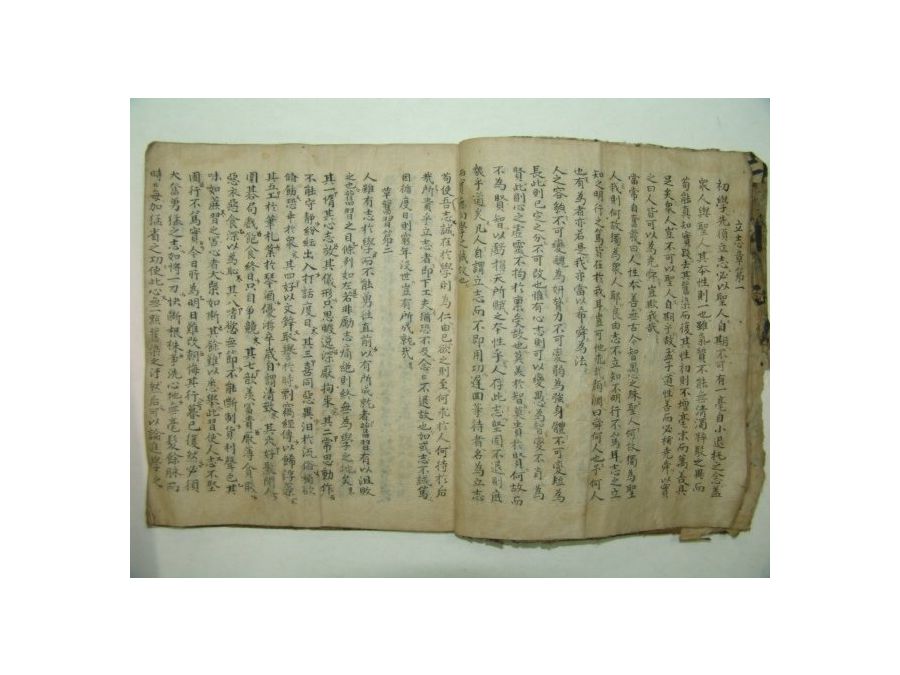 立志章第一
初學先須立志必以聖人自期不可有一毫自小退托之念盖
衆人與聖人其本性則一也雖氣質不能無清濁粹駁之異而
苟能真知實踐去其舊染而復其性初則不增毫末而萬善具
足矣衆人豈可不以聖人自期乎故孟子道性善而必稱堯舜以實
之曰人皆可以為堯舜豈欺我哉
當常自奮發曰人性本善無古今智愚之殊聖人何故獨為聖
人我則何故獨為衆人耶良由志不立知不明行不篤耳志之立
知之明行之篤皆在於我耳豈可他求哉顔淵曰舜何人也予何人
也有為者亦若是我亦當以希舜為法
人之容貌不可變醜為妍膂力不可變弱為強身體不可變短為
長此則已定之分不可改也惟有心志則可以變愚為智變不肖為
賢此則心之虛靈不拘於稟受故也莫美於智莫貴於賢何故而
不為賢知以虧損天所賦之本性乎人存此志堅固不退則庶
幾乎道矣凡人自謂立志而不即用功遲回等待者名為立志
而實無向學之誠故也
苟使吾志誠在於學則為仁由己欲之則至何求於人何待於后
我所貴乎立志者即下工夫猶恐不及念念不退故也如或志不誠篤
因循度日則窮年沒世豈有所成就哉
革舊習第二
人雖有志於學而不能勇往直前以有所成就者舊習有以沮敗
之也舊習之目條列如左若非勵志痛絶則終無為學之地矣
其一惰其心志放其儀形只思暇逸深厭拘束其二常思動作
不能守静紛紜出入打話度日其三喜同惡異汨於流俗稍欲
脩飭恐乖於衆其四好以文辭取譽於時剽竊經傳以餙浮藻
其五工於筆札業於琴酒優游卒歲自謂清致其六好聚閒人
圍棊局戱飽食終日只自爭競其七歆羡富貴厭薄貧賤
惡衣惡食深以為恥其八嗜慾無節不能断制貨利聲色其
味如蔗習之害心者大槩如斯其餘難以悉擧此習使人志不堅
固行不篤實今日所為明日難改朝悔其行暮已復然必須
大奮勇猛之志如將一刀快断根株净洗心地無毫髮之餘脉而
時時每加猛省之功使此心無一點舊染之汚然后可以論進學之